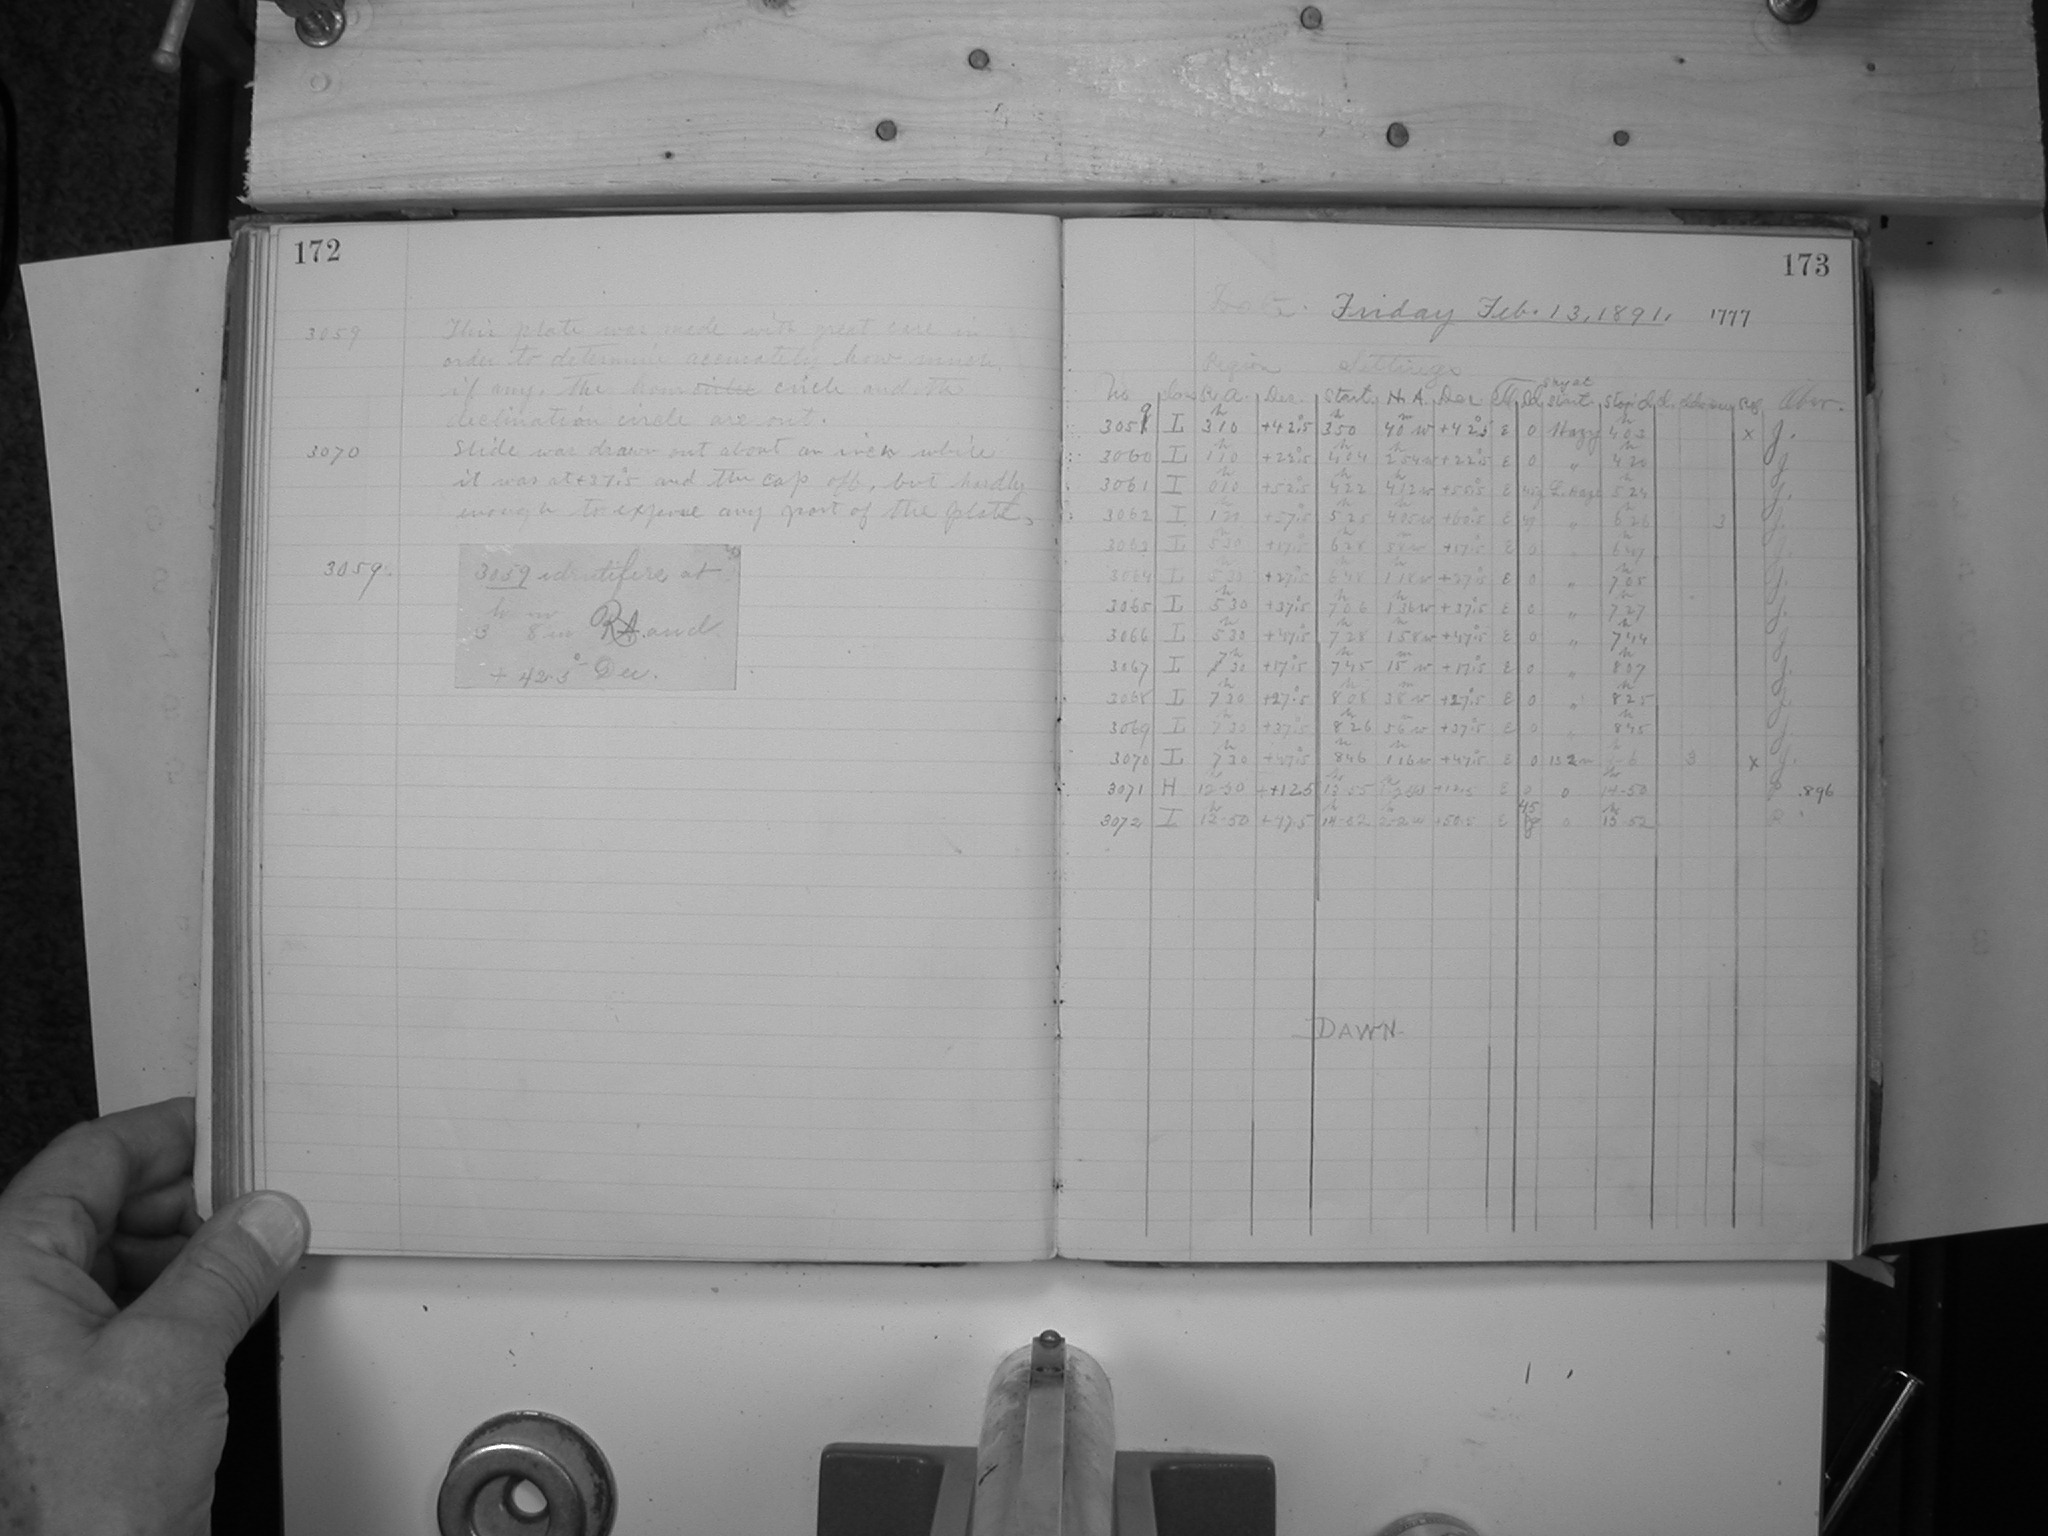 172
3059 This plate was made with great care in
order to determine accurately how much,
if any, the hour circle circle and the
declination circle are out.
3070 Slide was drawn out about an inch while
it was at +37°.5 and the cap off, but hardly
enough to expose any part of the plate.
3059. 3059 identifies at
h m
3 8 in RA and
+ 42.5° Dec.
173
Date. Friday Feb. 13, 1891. 1777
Region Settings
No R.A. Dec. Start. H.A. Dec Sky at Start. Stop Obsr.
3059 I 3 10 +42.5 3 50 40 w +42.5 E 0 Hazy 4 03 x J.
3060 I 1 10 +22.5 4 04 2 54 w +22.5 E 0 " 4 20 J.
3061 I 0 10 +52.5 4 22 4 12 w +55.5 E L. Haze 5 24 J.
3062 I +57.5 5 25 4 05 w +60.5 E " 6 26 3 J.
3063 I 5 30 +17.5 6 28 58 w +17.5 E 0 " 6 47 J.
3064 I 5 30 +27.5 6 48 1 18 w +27.5 E 0 " 7 05 J.
3065 I 5 30 +37.5 7 06 1 36 w +37.5 E 0 " 7 27 J.
3066 I 5 30 +47.5 7 28 1 58 w +47.5 E 0 " 7 44 J.
3067 I 7 30 +17.5 7 45 15 w +17.5 E 0 " 8 07 J.
3068 I 7 30 +27.5 8 08 38 w +27.5 E 0 " 8 25 J.
3069 I 7 30 +37.5 8 26 56 w +37.5 E 0 " 8 45 J.
3070 I 7 30 +47.5 8 46 1 16 w +47.5 E 0 3 x J.
3071 H 12-30 +12.5 13 55 +12.5 E 0 0 14-50 .896
3072 I 12-50 +47.5 14-52 2-2 w +50.5 E 45 0 15-52
DAWN